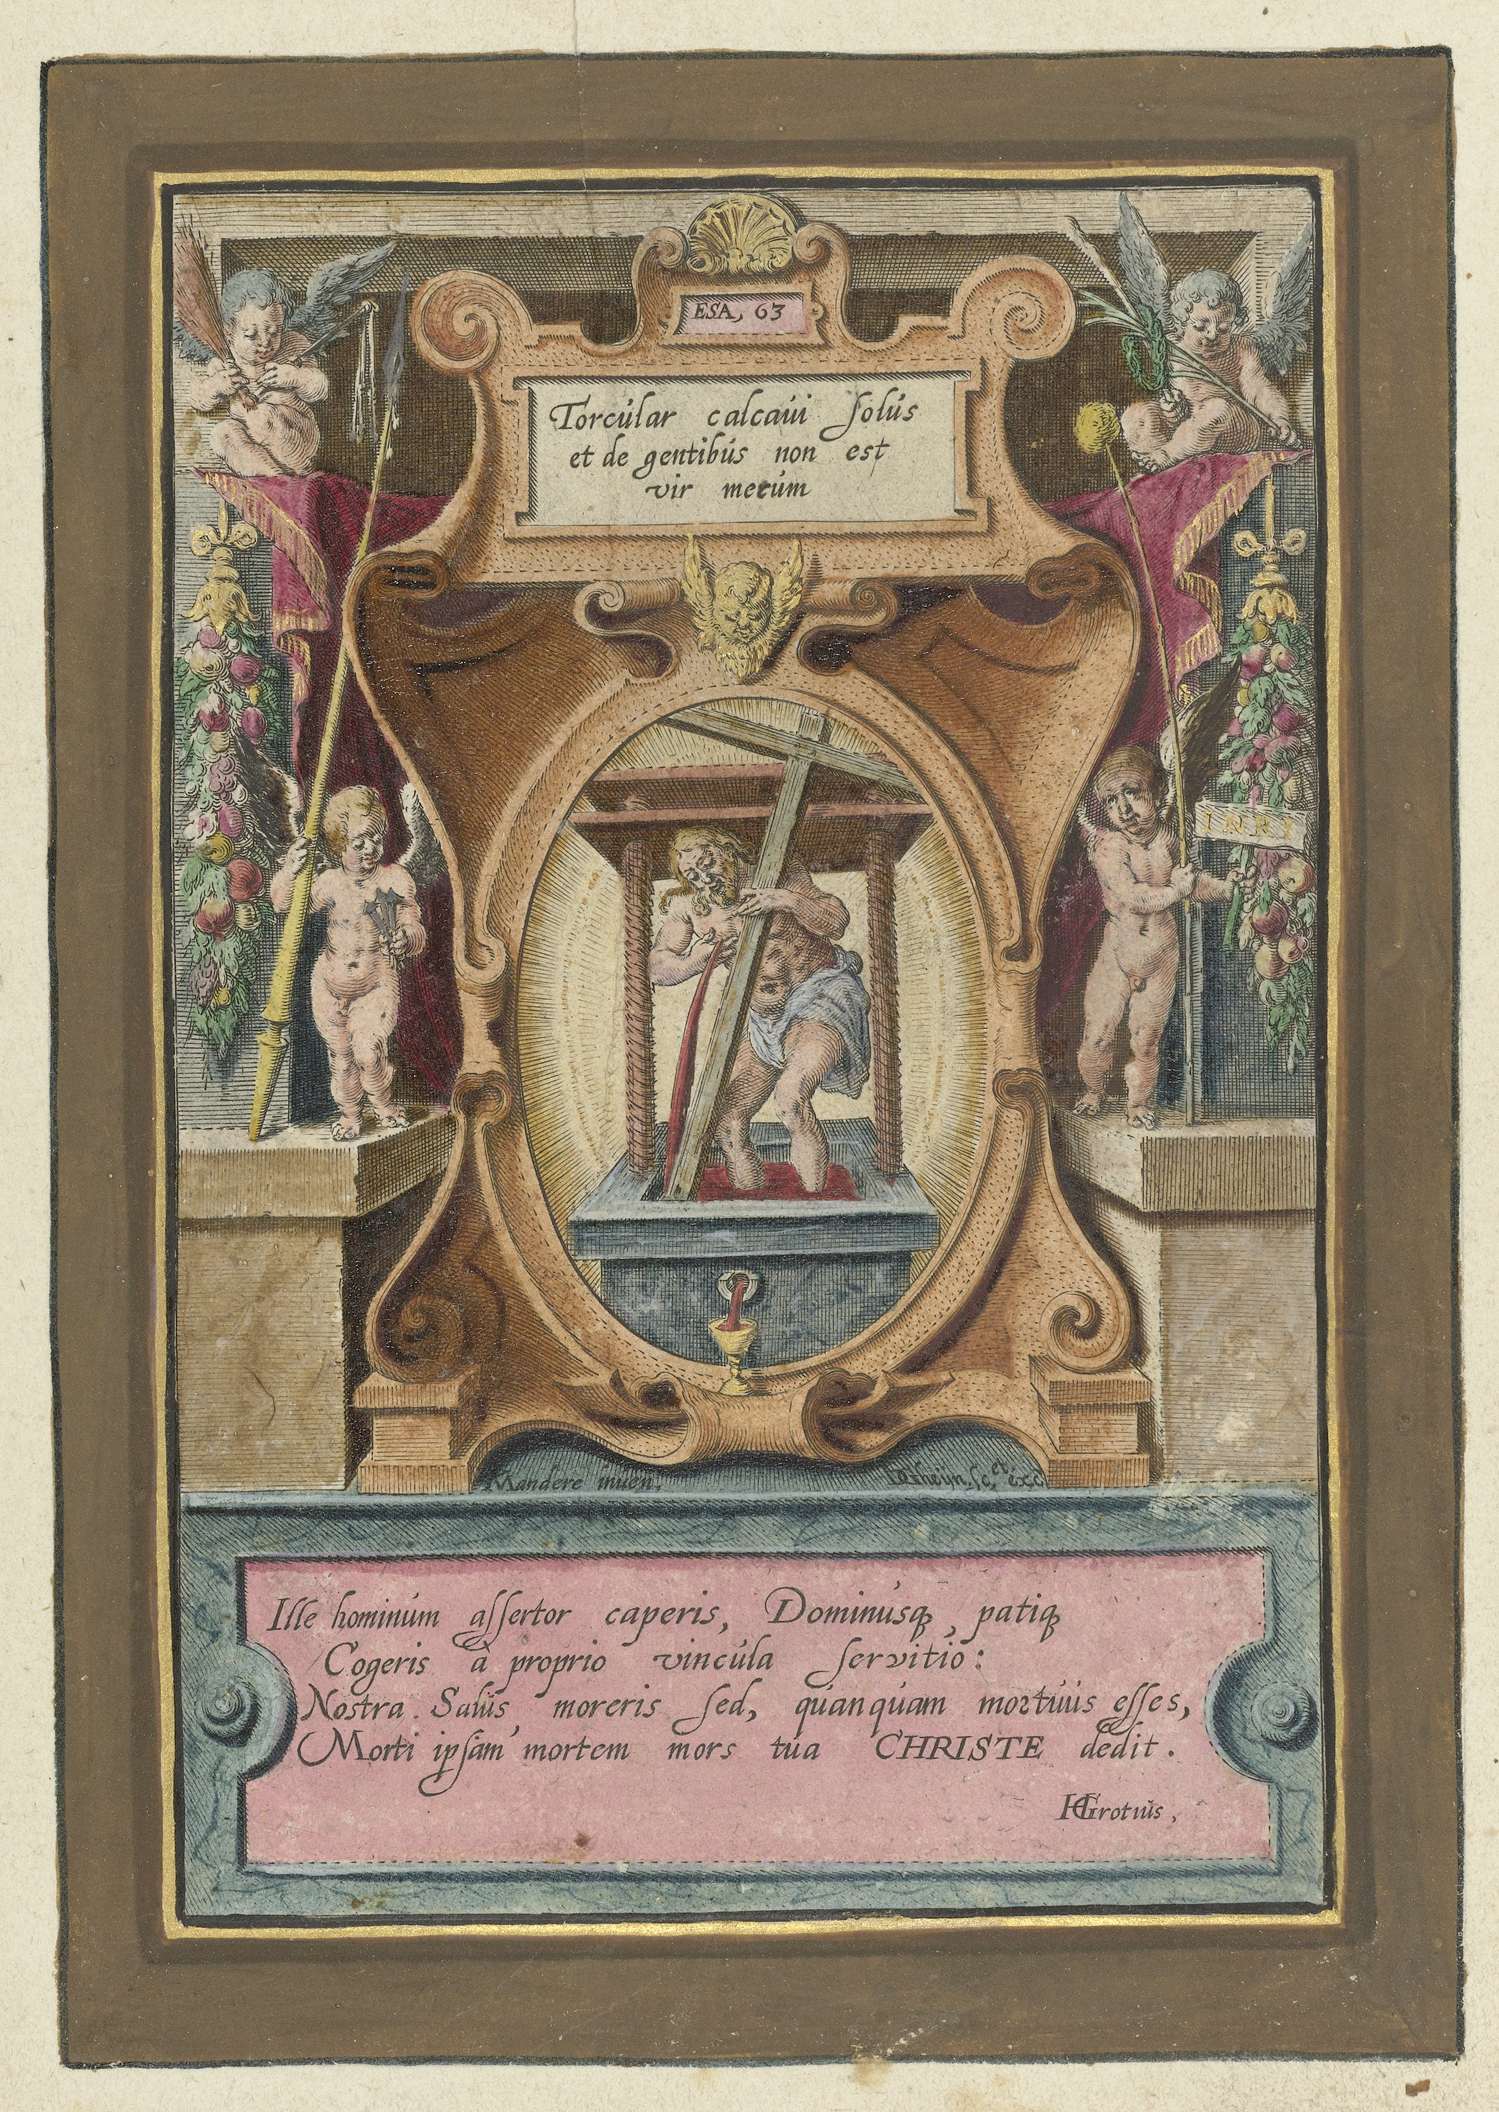 ESA, 63
Torcular calcaui solus
et de gentibus non est
vir mecum
INRI
Mandere inuen.
DGheijn, sc. et exc.
Ille hominum assertor caperis, Dominusq, patiq
Cogeris à proprio vincula servitio:
Nostra Salus, moreris sed, quanquam mortuus esses,
Morti ipsam mortem mors tua CHRISTE dedit.
HGrotius,